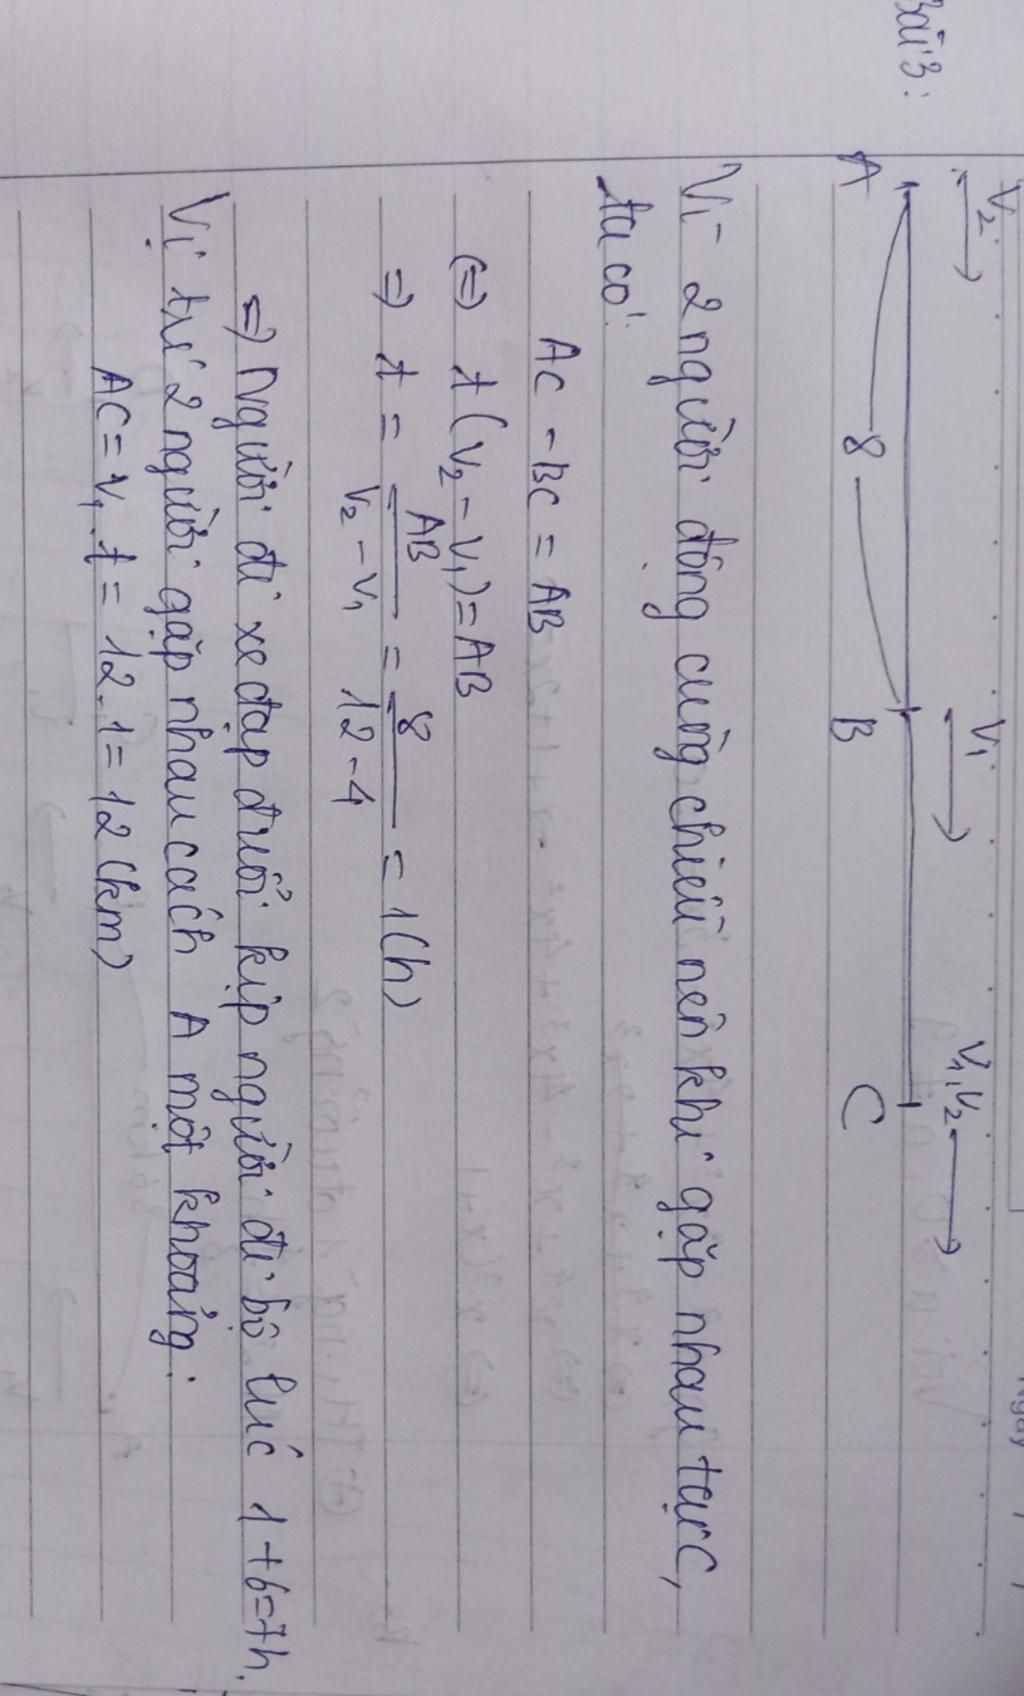 Bài 3:
V₂ V₁ V₁, V₂
A 8 B C
Vì 2 người động cùng chiều nên khi gặp nhau tại C,
ta có:
AC - BC = AB
(=) t(V₂ - V₁) = AB
=) t = AB / V₂ - V₁ = 8 / 12 - 4 = 1 (h)
=) Người đi xe đạp đuổi kịp người đi bộ lúc 1 + 6 = 7h.
Vị trí 2 người gặp nhau cách A một khoảng:
AC = V₁ . t = 12 . 1 = 12 (km)